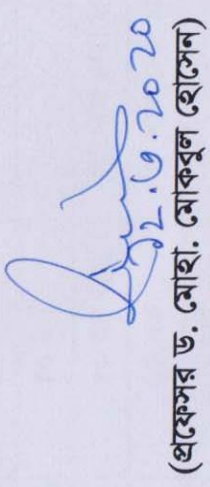 ২.৬.২০২০
(প্রফেসর ড. মোহা. মোকবুল হোসেন)